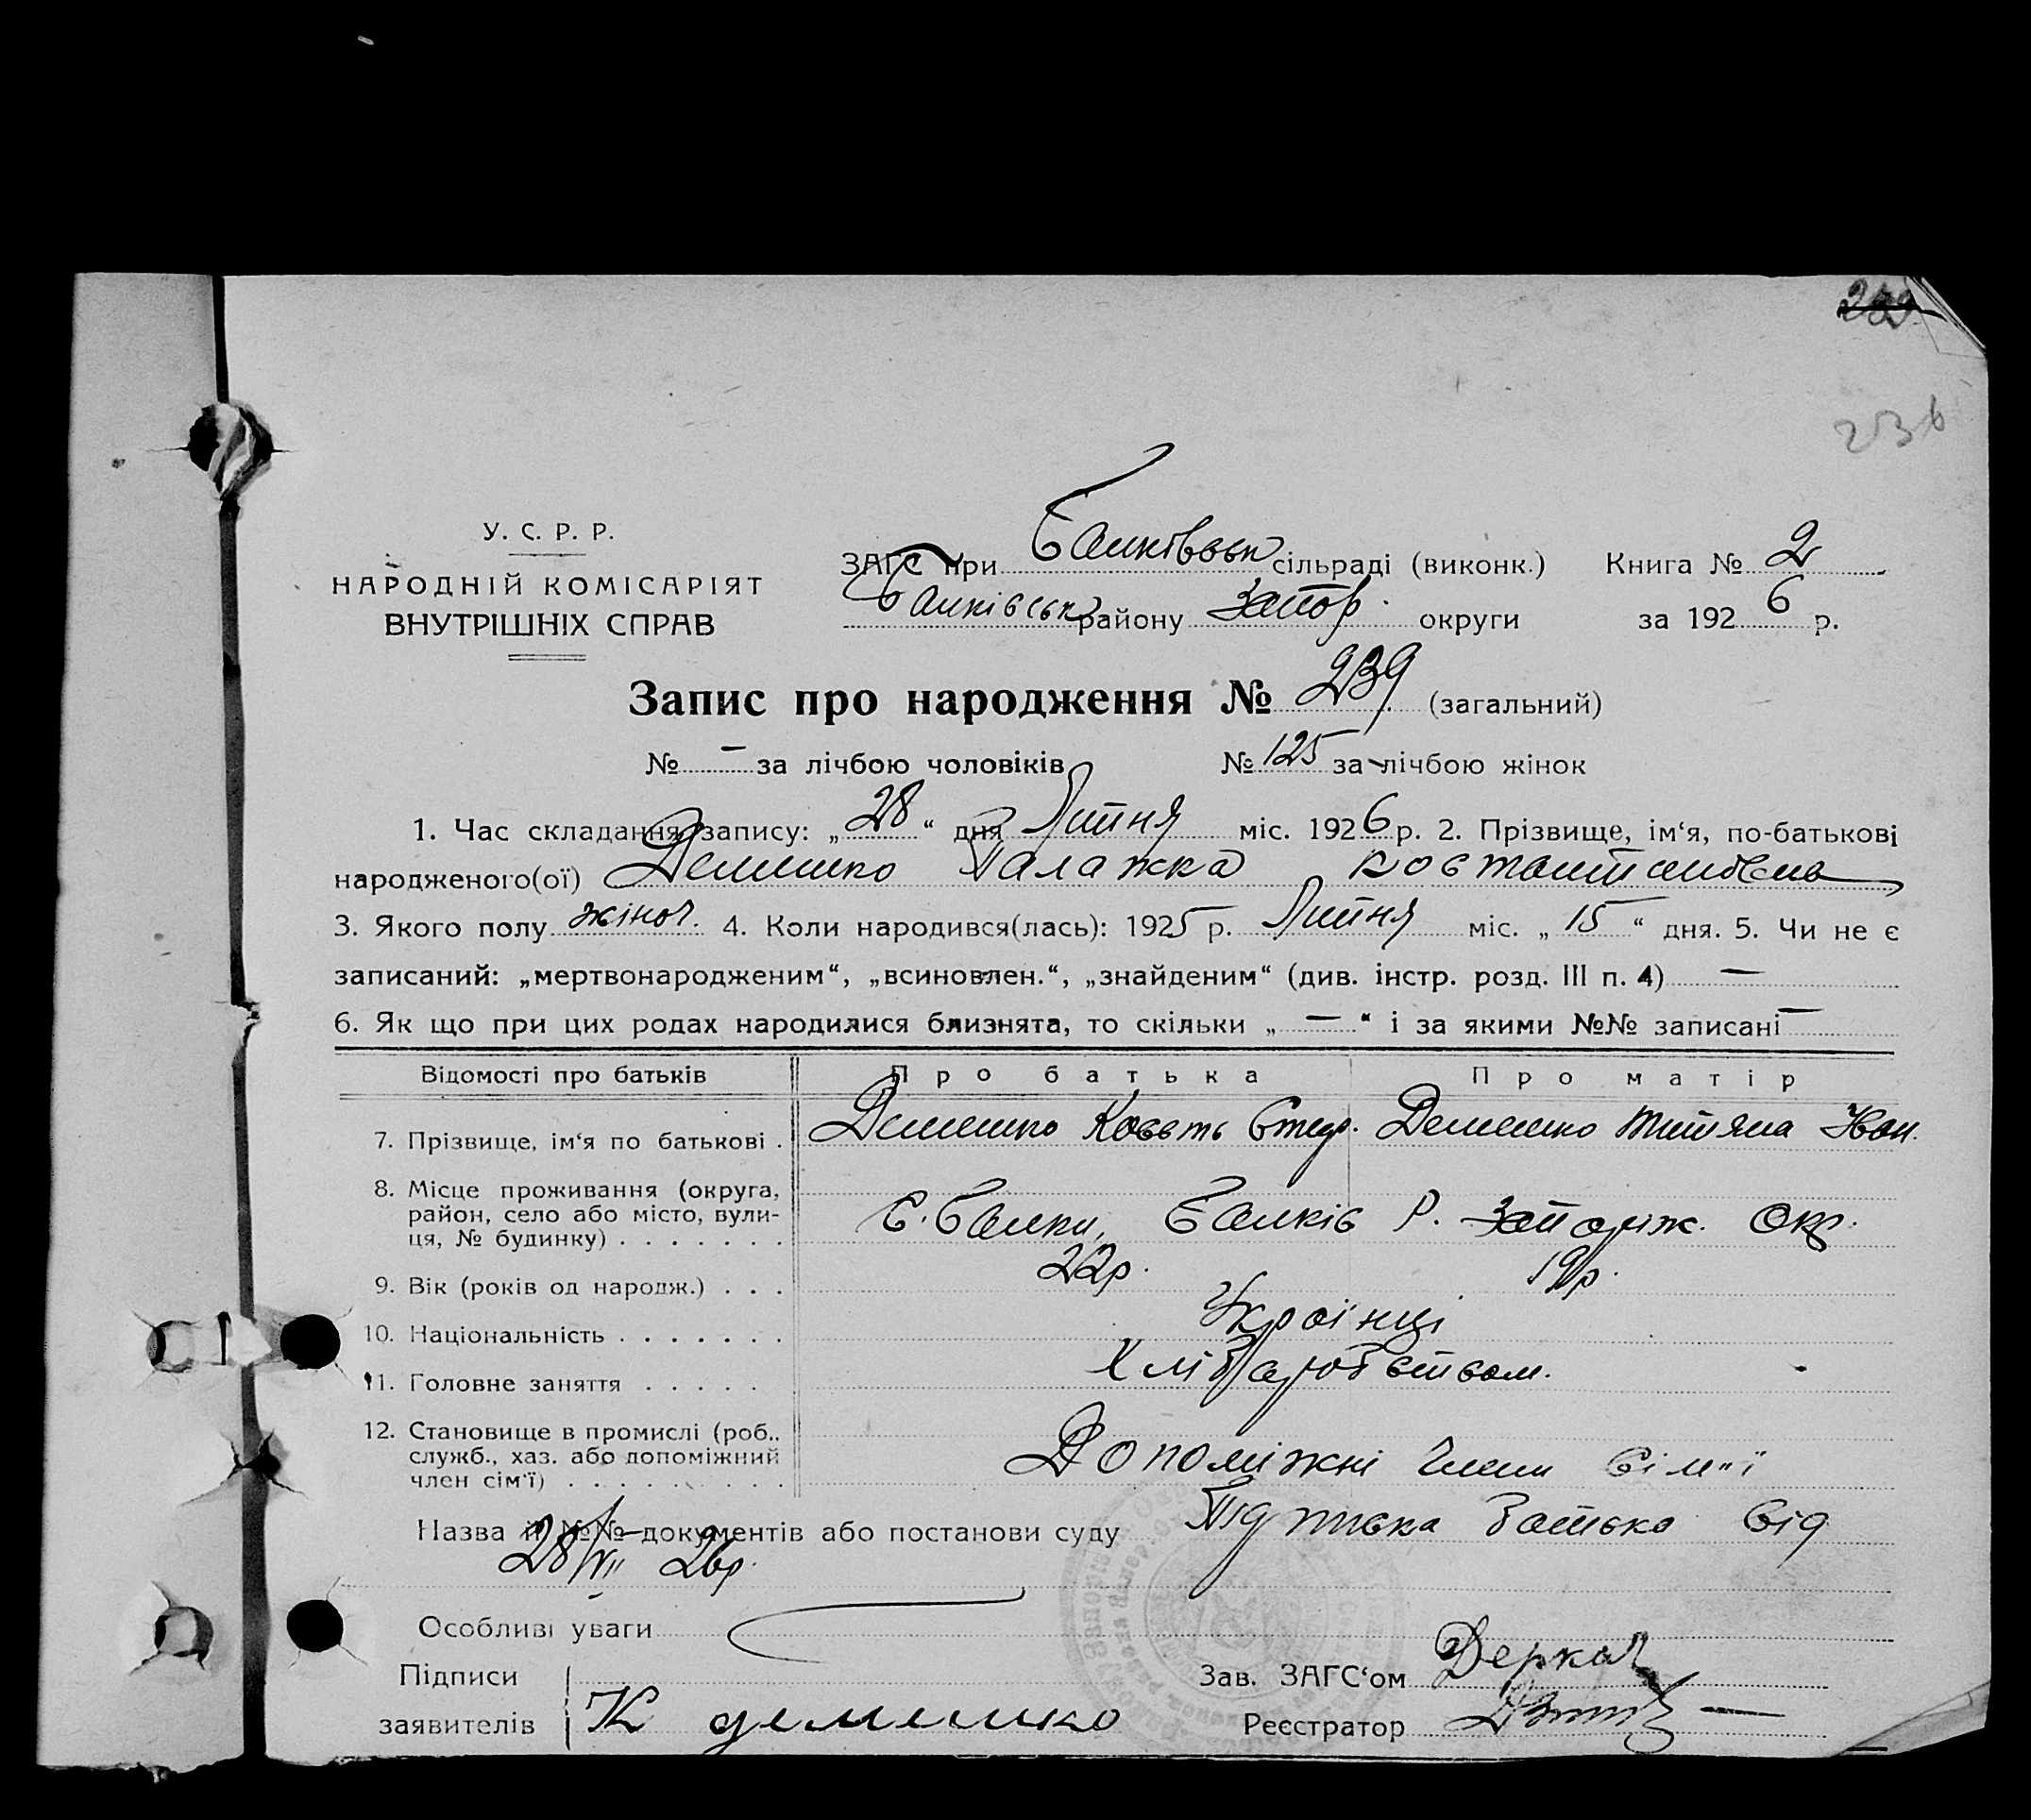 239
236
У. С. Р. Р.
НАРОДНІЙ КОМІСАРІЯТ
ВНУТРІШНІХ СПРАВ
ЗАГС при Балківськ сільраді (виконк.) Книга № 2
Балківськ району Запор. округи за 1926 р.
Запис про народження № 239 (загальний)
№ – за лічбою чоловіків № 125 за лічбою жінок
1. Час складання запису: „28“ дня Липня міс. 1926 р. 2. Прізвище, ім‘я, по-батькові
народженого(ої) Демешко Палажка
3. Якого полу жіноч. 4. Коли народився(лась): 1925 р. Липня міс. „15“ дня. 5. Чи не є
записаний: „мертвонародженим“, „всиновлен.“, „знайденим“ (див. інстр. розд. III п. 4) —
6. Як що при цих родах народилися близнята, то скільки „ — “ і за якими №№ записані —
Відомості про батьків Про батька Про матір
7. Прізвище, ім‘я по батькові . Демешко Кость Демешко Иван.
8. Місце проживання (округа,
район, село або місто, вули-
ця, № будинку) . . . . . . . С. Балки, Балків Р. Запоріж. Окр.
9. Вік (років од народж.) . . . 22р. 19р.
10. Національність . . . . . . . Українці
11. Головне заняття . . . . . Хліборобством.
12. Становище в промислі (роб.,
служб., хаз. або допоміжний
член сім‘ї) . . . . . . . . . . Допоміжні члени сім"ї
Назва й №№ документів або постанови суду Підписка батька від
28/VII 26р.
Особливі уваги
Підписи
заявителів К демешко
Зав. ЗАГС‘ом Деркач
Реєстратор